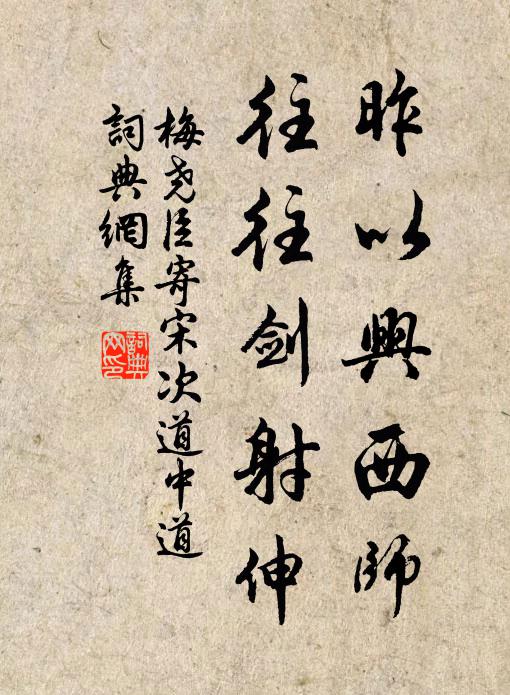 昨以興西師
往往劍射伸
梅堯臣寄宋次道中道
詞典網集
詞典網印